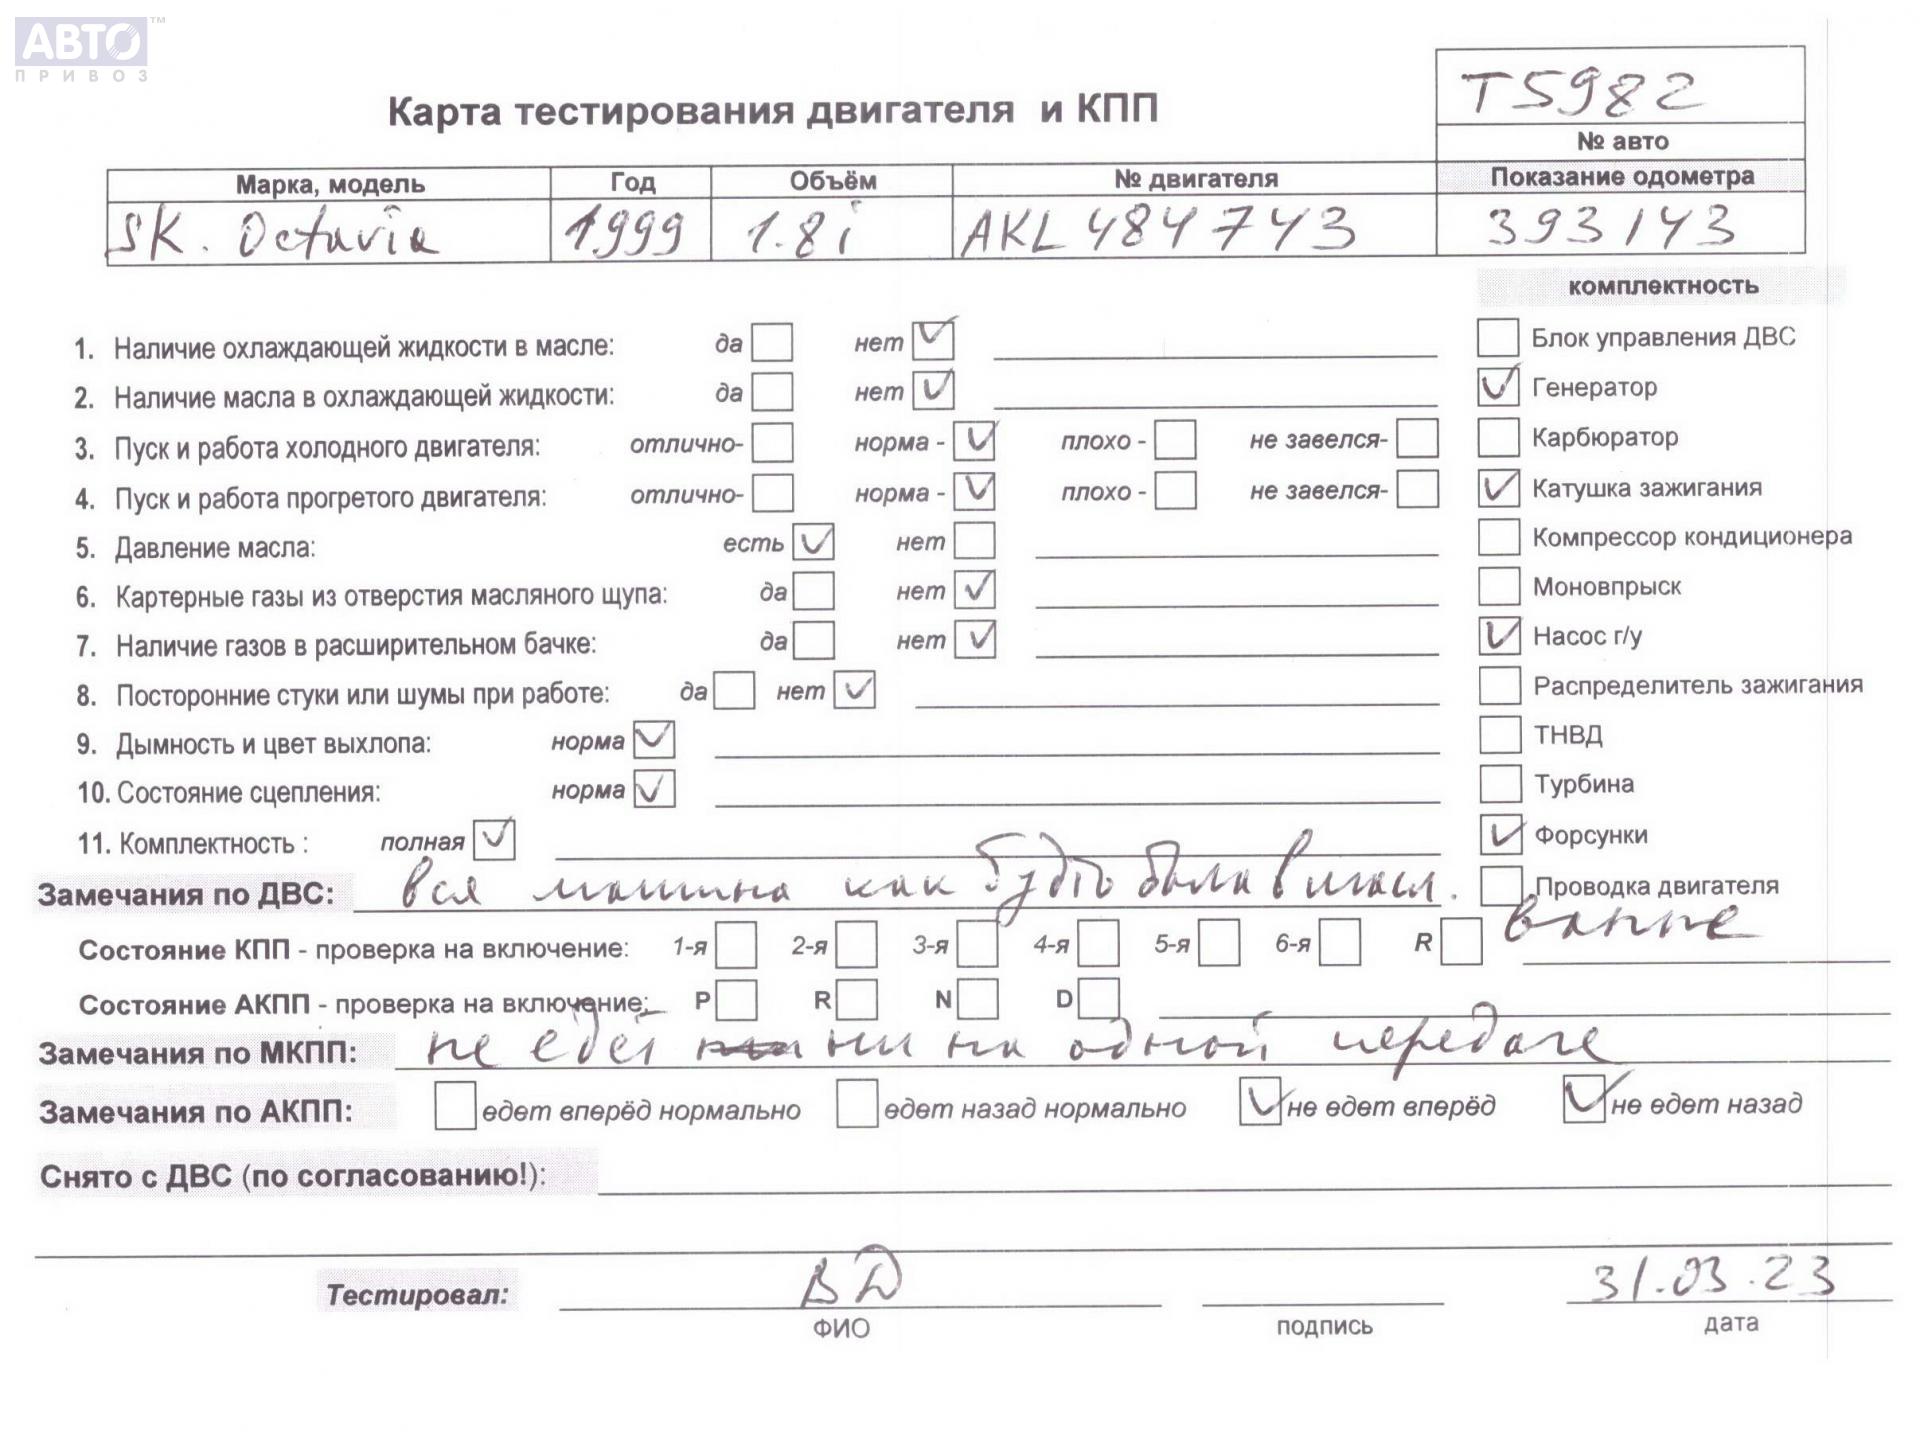 АВТО™
ПРИВОЗ
Карта тестирования двигателя и КПП
T5982
№ авто
Марка, модель Год Объём № двигателя Показание одометра
SK. Octavia 1999 1.8i AKL 484743 393143
комплектность
1. Наличие охлаждающей жидкости в масле: да нет ✓ Блок управления ДВС
2. Наличие масла в охлаждающей жидкости: да нет ✓ ✓ Генератор
3. Пуск и работа холодного двигателя: отлично- норма - ✓ плохо - не завелся- Карбюратор
4. Пуск и работа прогретого двигателя: отлично- норма - ✓ плохо - не завелся- ✓ Катушка зажигания
5. Давление масла: есть ✓ нет Компрессор кондиционера
6. Картерные газы из отверстия масляного щупа: да нет ✓ Моновпрыск
7. Наличие газов в расширительном бачке: да нет ✓ ✓ Насос г/у
8. Посторонние стуки или шумы при работе: да нет ✓ Распределитель зажигания
9. Дымность и цвет выхлопа: норма ✓ ТНВД
10. Состояние сцепления: норма ✓ Турбина
11. Комплектность : полная ✓ ✓ Форсунки
Замечания по ДВС: вся машина как будто была в Проводка двигателя
Состояние КПП - проверка на включение: 1-я 2-я 3-я 4-я 5-я 6-я R ванне
Состояние АКПП - проверка на включение: P R N D
Замечания по МКПП: не едет ни на одной передаче
Замечания по АКПП: едет вперёд нормально едет назад нормально ✓ не едет вперёд ✓ не едет назад
Снято с ДВС (по согласованию!):
Тестировал: ВД 31.03.23
ФИО подпись дата